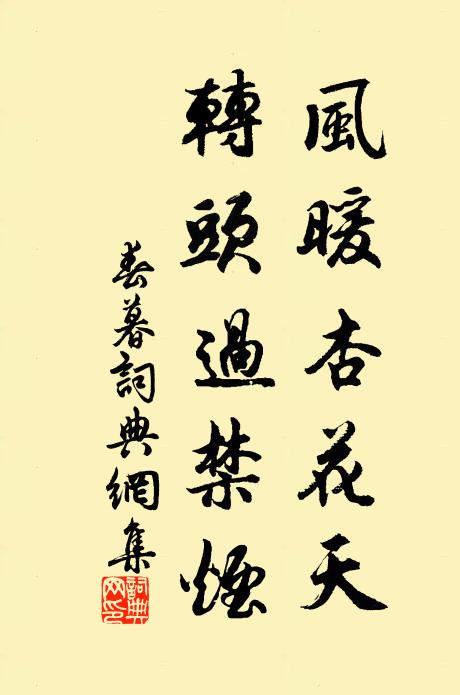 風暖杏花天
轉頭過禁煙
春暮詞典網集
詞典网印